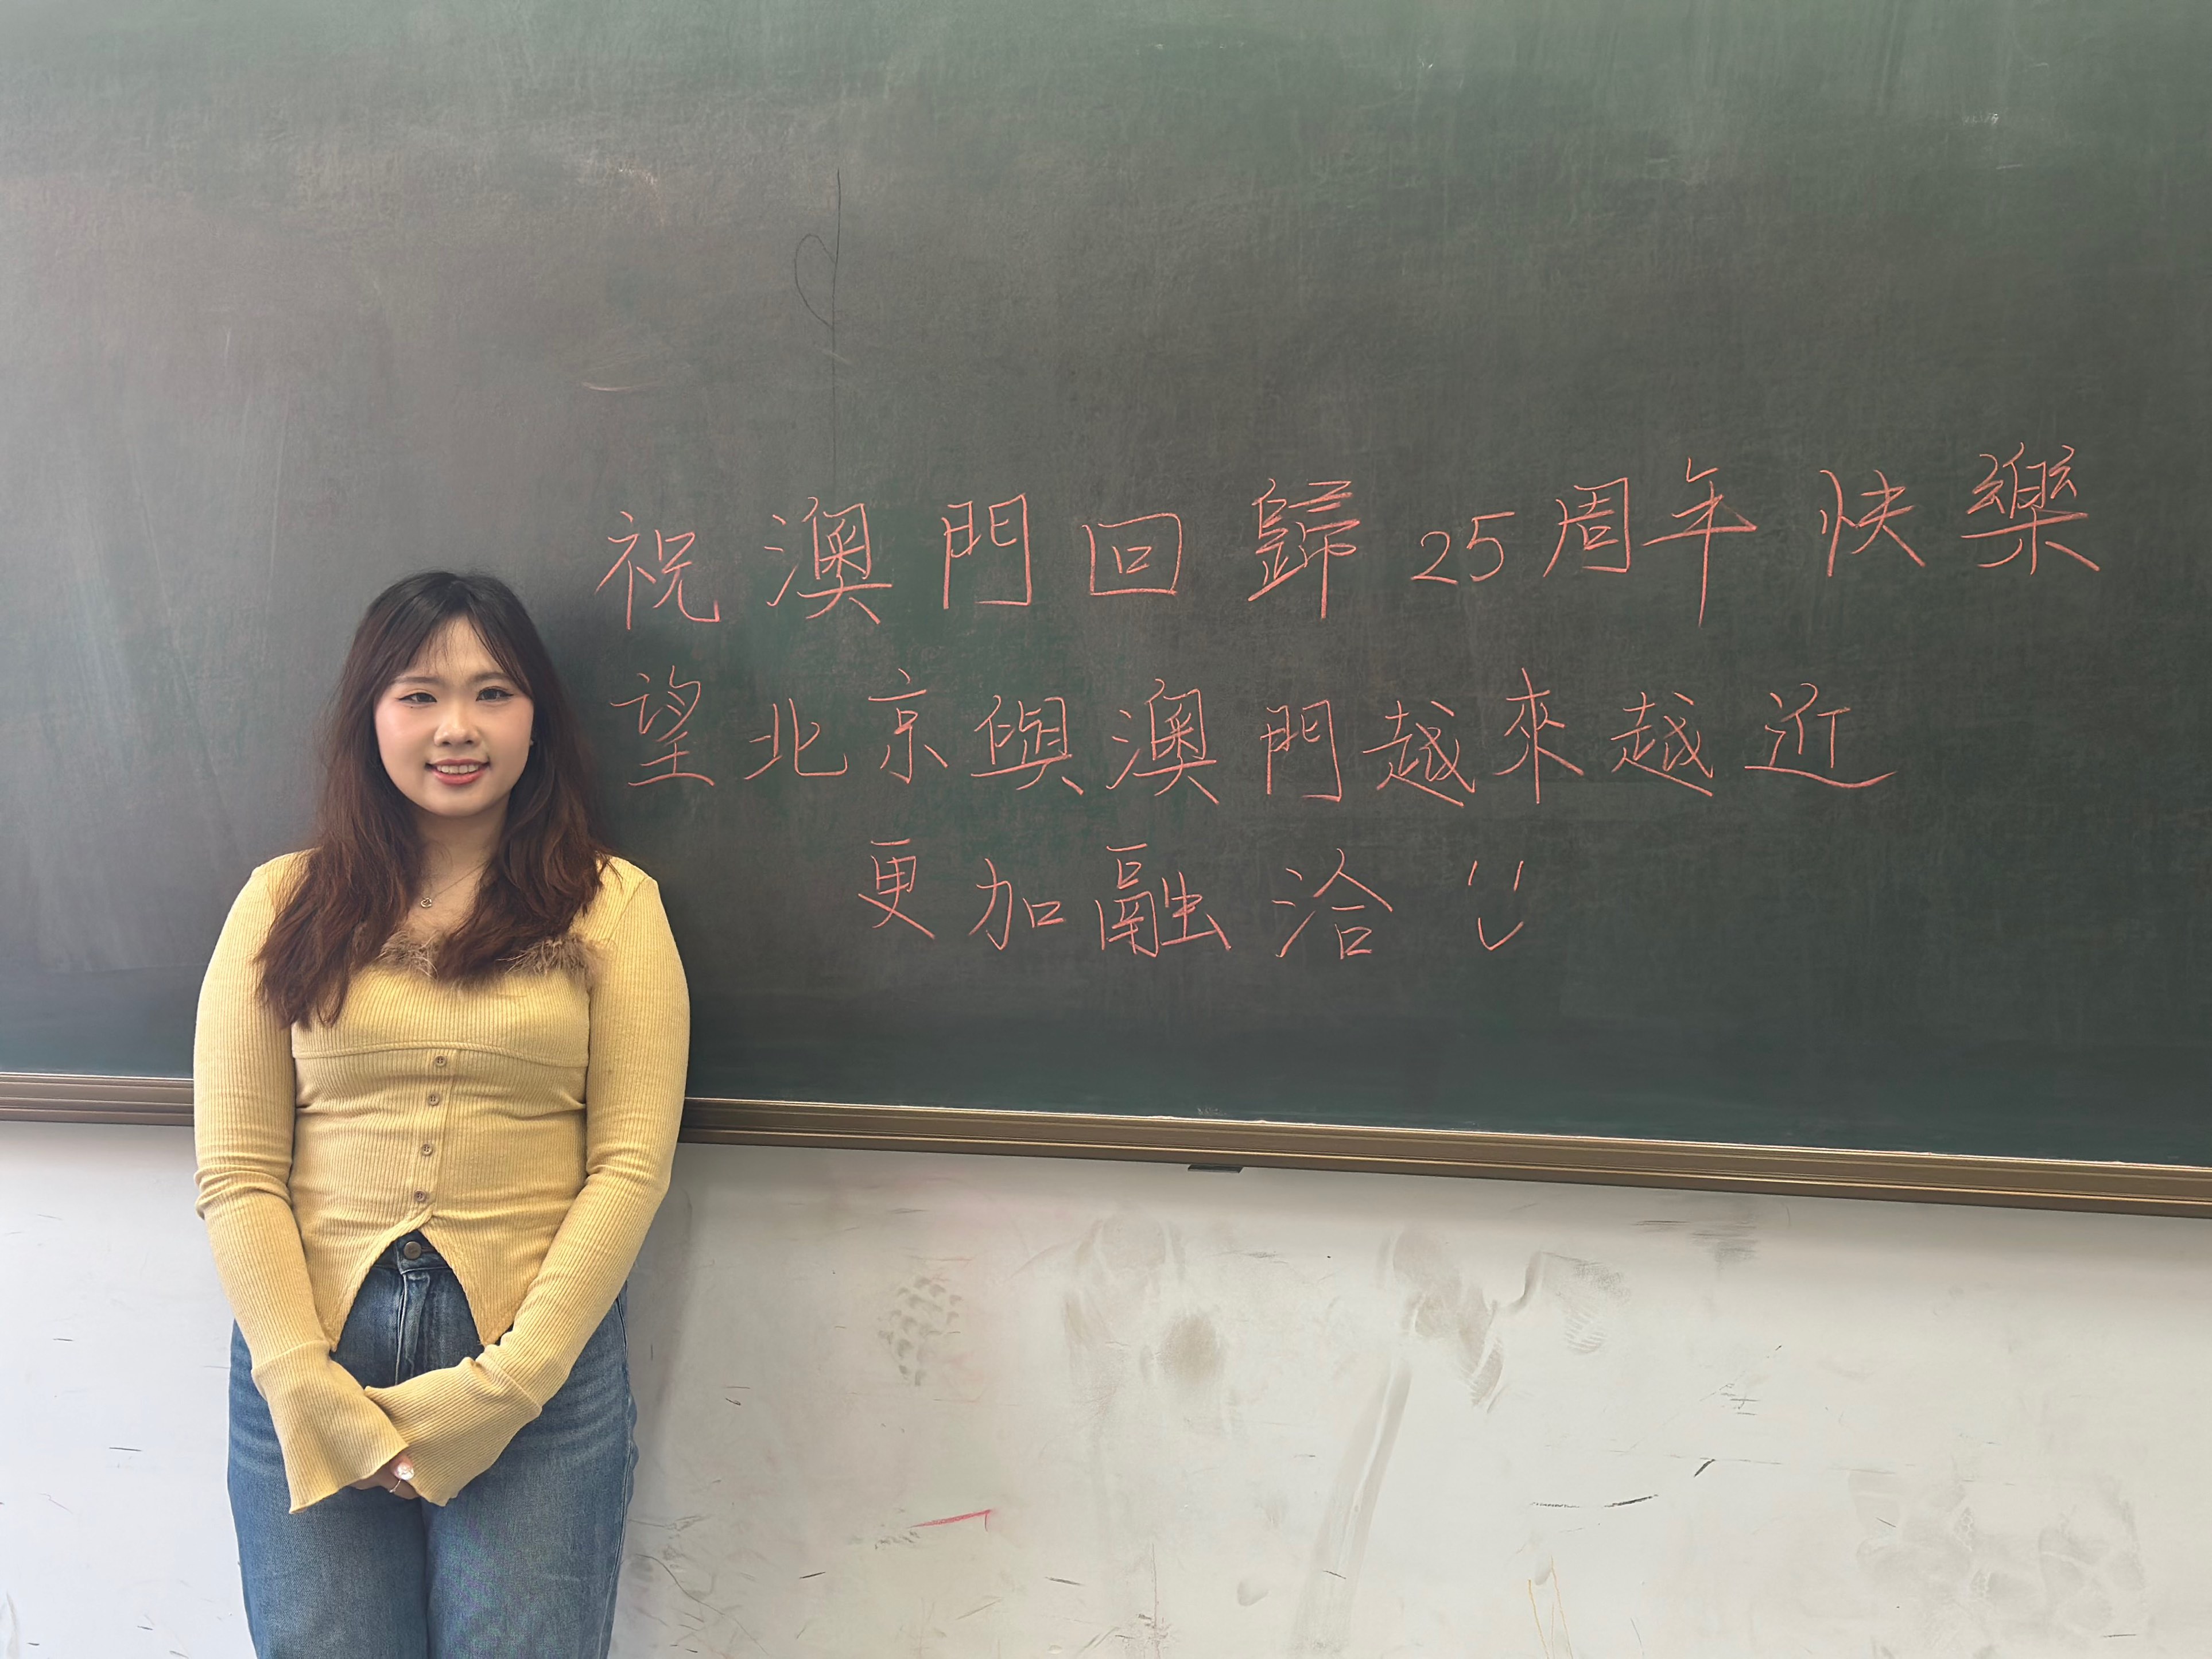 祝澳門回歸25周年快樂
望北京與澳門越來越近
更加融洽